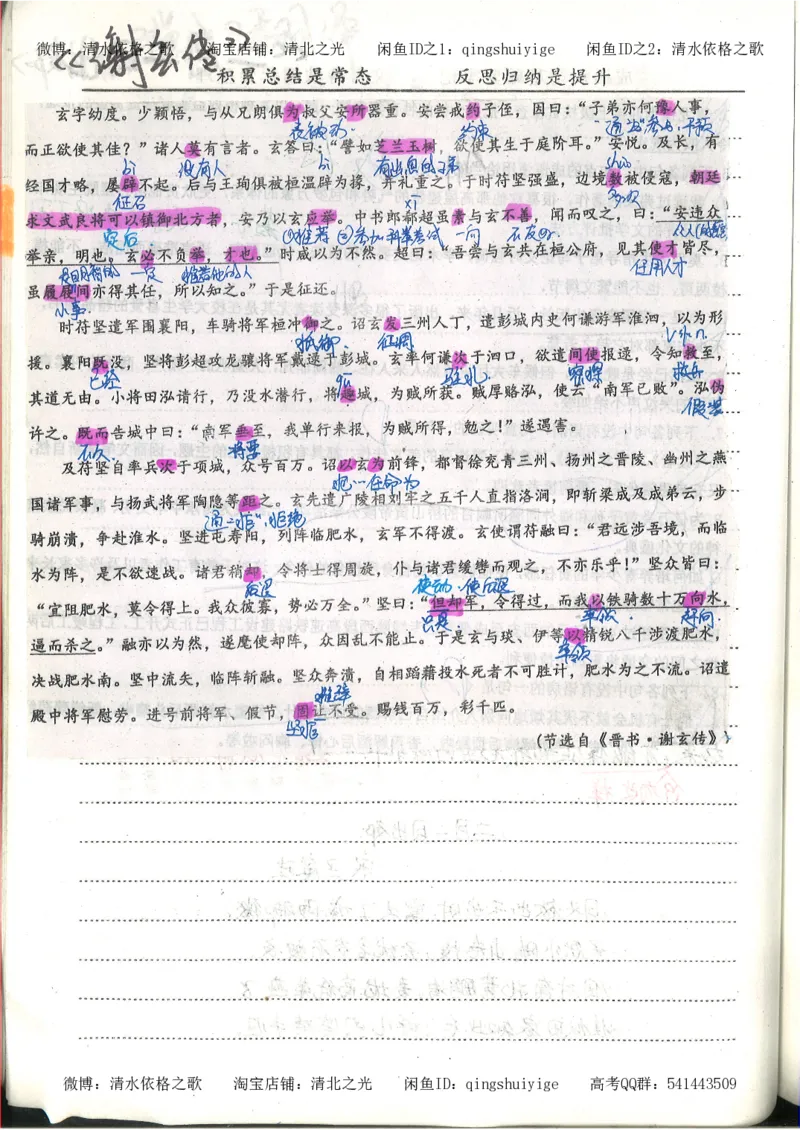 微博：清水依格之歌 淘宝店铺：清北之光 闲鱼ID之1：qingshuiyige 闲鱼ID之2：清水依格之歌
《谢玄传》
积累总结是常态 反思归纳是提升
玄字幼度。少颖悟，与从兄朗俱为叔父安所器重。安尝戒约子侄，因曰：“子弟亦何豫人事，
表被动 约束 “通‘与’”参与，干预
而正欲使其佳？”诸人莫有言者。玄答曰：“譬如芝兰玉树，欲使其生于庭阶耳。”安悦。及长，有
bì 没有人 有出息的子弟
经国才略，屡辟不起。后与王珣俱被桓温辟为掾，并礼重之。于时苻坚强盛，边境数被侵寇，朝廷
征召 xī 多次
求文武良将可以镇御北方者，安乃以玄应举。中书郎郗超虽素与玄不善，闻而叹之，曰：“安违众
定后 ①推荐 ②参加科举考试 一向 不友好
举亲，明也。玄必不负举，才也。”时咸以为不然。超曰：“吾尝与玄共在桓公府，见其使才皆尽，
一定 推荐他的人 任用人才
虽履屐间亦得其任，所以知之。”于是征还。
小事
时苻坚遣军围襄阳，车骑将军桓冲御之。诏玄发三州人丁，遣彭城内史何谦游军淮泗，以为形
抵御 征调
援。襄阳既没，坚将彭超攻龙骧将军戴逯于彭城。玄率何谦次于泗口，欲遣间使报逯，令知救至，
已经 驻扎 间谍 救兵
其道无由。小将田泓请行，乃没水潜行，将趣城，为贼所获。贼厚赂泓，使云“南军已败”。泓伪
qū 假装
许之。既而告城中曰：“南军垂至，我单行来报，为贼所得，勉之！”遂遇害。
不久 将要
及苻坚自率兵次于项城，众号百万。诏以玄为前锋，都督徐兖青三州、扬州之晋陵、幽州之燕
把…任命为
国诸军事，与扬武将军陶隐等距之。玄先遣广陵相刘牢之五千人直指洛涧，即斩梁成及成弟云，步
通“拒”，抵抗
骑崩溃，争赴淮水。坚进屯寿阳，列阵临肥水，玄军不得渡。玄使谓苻融曰：“君远涉吾境，而临
水为阵，是不欲速战。诸君稍却，令将士得周旋，仆与诸君缓辔而观之，不亦乐乎！”坚众皆曰：
后退 使动，使后退
“宜阻肥水，莫令得上。我众彼寡，势必万全。”坚曰：“但却军，令得过，而我以铁骑数十万向水，
只要 率领 赶向
逼而杀之。”融亦以为然，遂麾使却阵，众因乱不能止。于是玄与琰、伊等以精锐八千涉渡肥水，
率领
决战肥水南。坚中流矢，临阵斩融。坚众奔溃，自相蹈藉投水死者不可胜计，肥水为之不流。诏遣
殿中将军慰劳。进号前将军、假节，固让不受。赐钱百万，彩千匹。
推辞
(节选自《晋书·谢玄传》)
微博：清水依格之歌 淘宝店铺：清北之光 闲鱼ID：qingshuiyige 高考QQ群：541443509